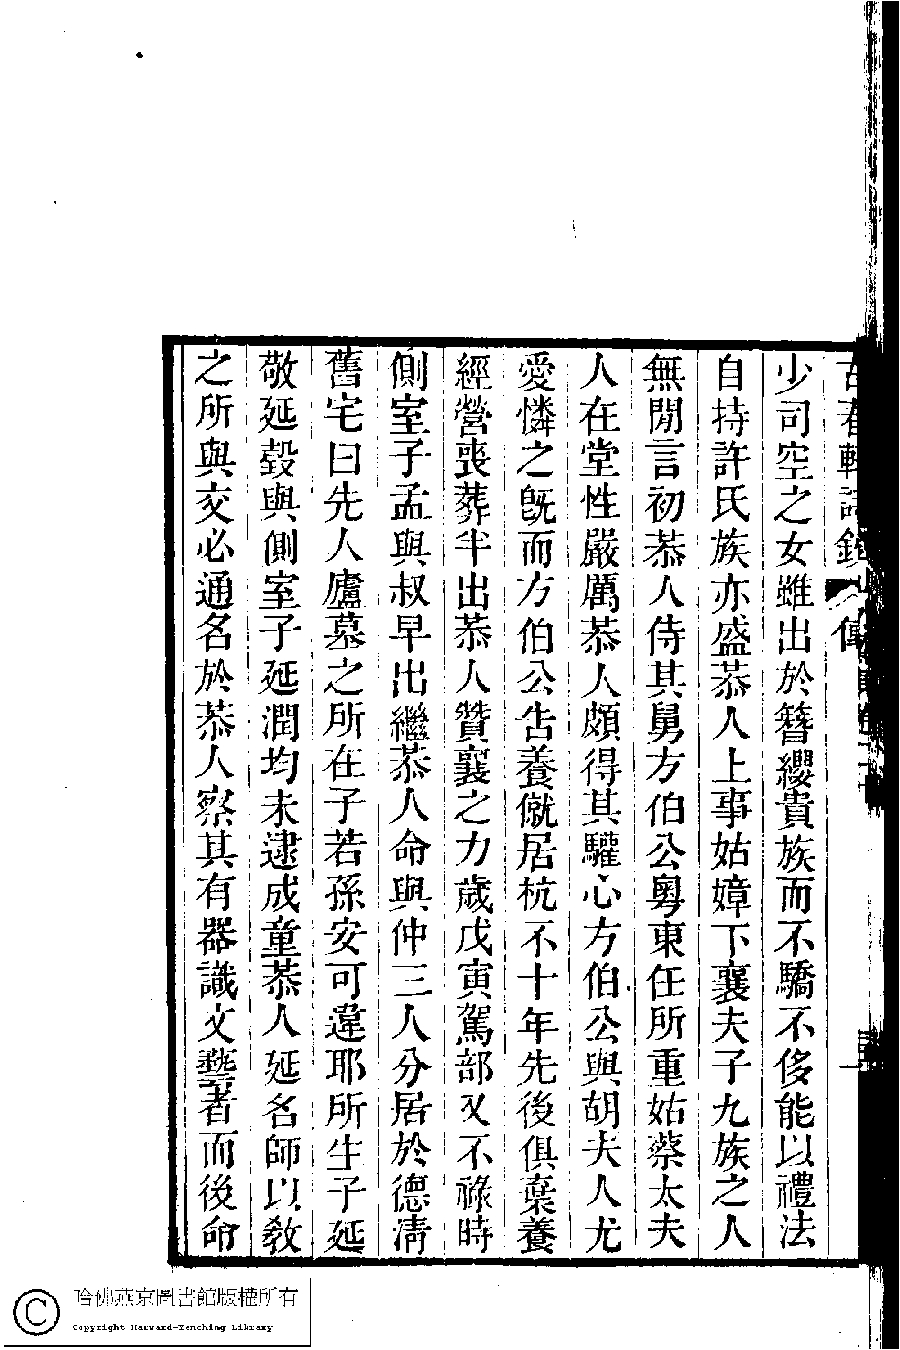 古春軒詩鈔 傳
少司空之女雖出於簪纓貴族而不驕不侈能以禮法
自持許氏族亦盛恭人上事姑嫜下襄夫子九族之人
無閒言初恭人侍其舅方伯公粵東任所重姑蔡太夫
人在堂性嚴厲恭人頗得其驩心方伯公與胡夫人尤
愛憐之旣而方伯公告養僦居杭不十年先後俱棄養
經營喪葬半出恭人贊襄之力歲戊寅駕部又不祿時
側室子孟與叔早出繼恭人命與仲三人分居於德淸
舊宅曰先人廬墓之所在子若孫安可違耶所生子延
敬延瑴與側室子延潤均未逮成童恭人延名師以敎
之所與交必通名於恭人察其有器識文藝者而後命
哈佛燕京圖書館版權所有
Copyright Harvard-Yenching Library